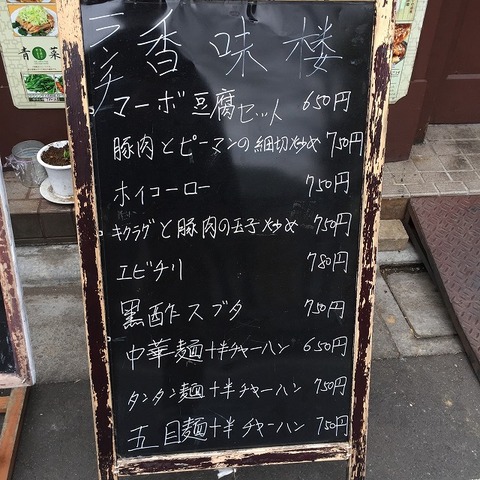 ランチ
香味楼
マーボ豆腐セット 650円
豚肉とピーマンの細切炒め 750円
ホイコーロー 750円
キクラゲと豚肉の玉子炒め 750円
エビチリ 780円
黒酢スブタ 750円
中華麺+半チャーハン 650円
タンタン麺+半チャーハン 750円
五目麺+半チャーハン 750円
青菜